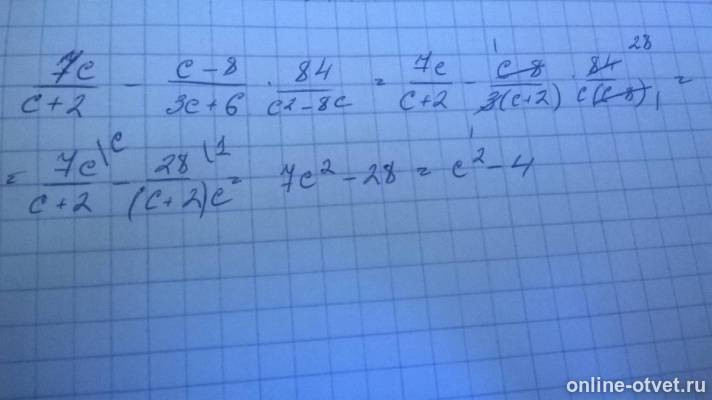 7c/(c+2) − (c−8)/(3c+6) · 84/(c²−8c) = 7c/(c+2) − (c−8)/(3(c+2)) · 84/(c(c−8)) = 1 1 28 1
= 7c/(c+2) \c − 28/((c+2)c) \1 = 7c²−28 = c²−4
online-otvet.ru